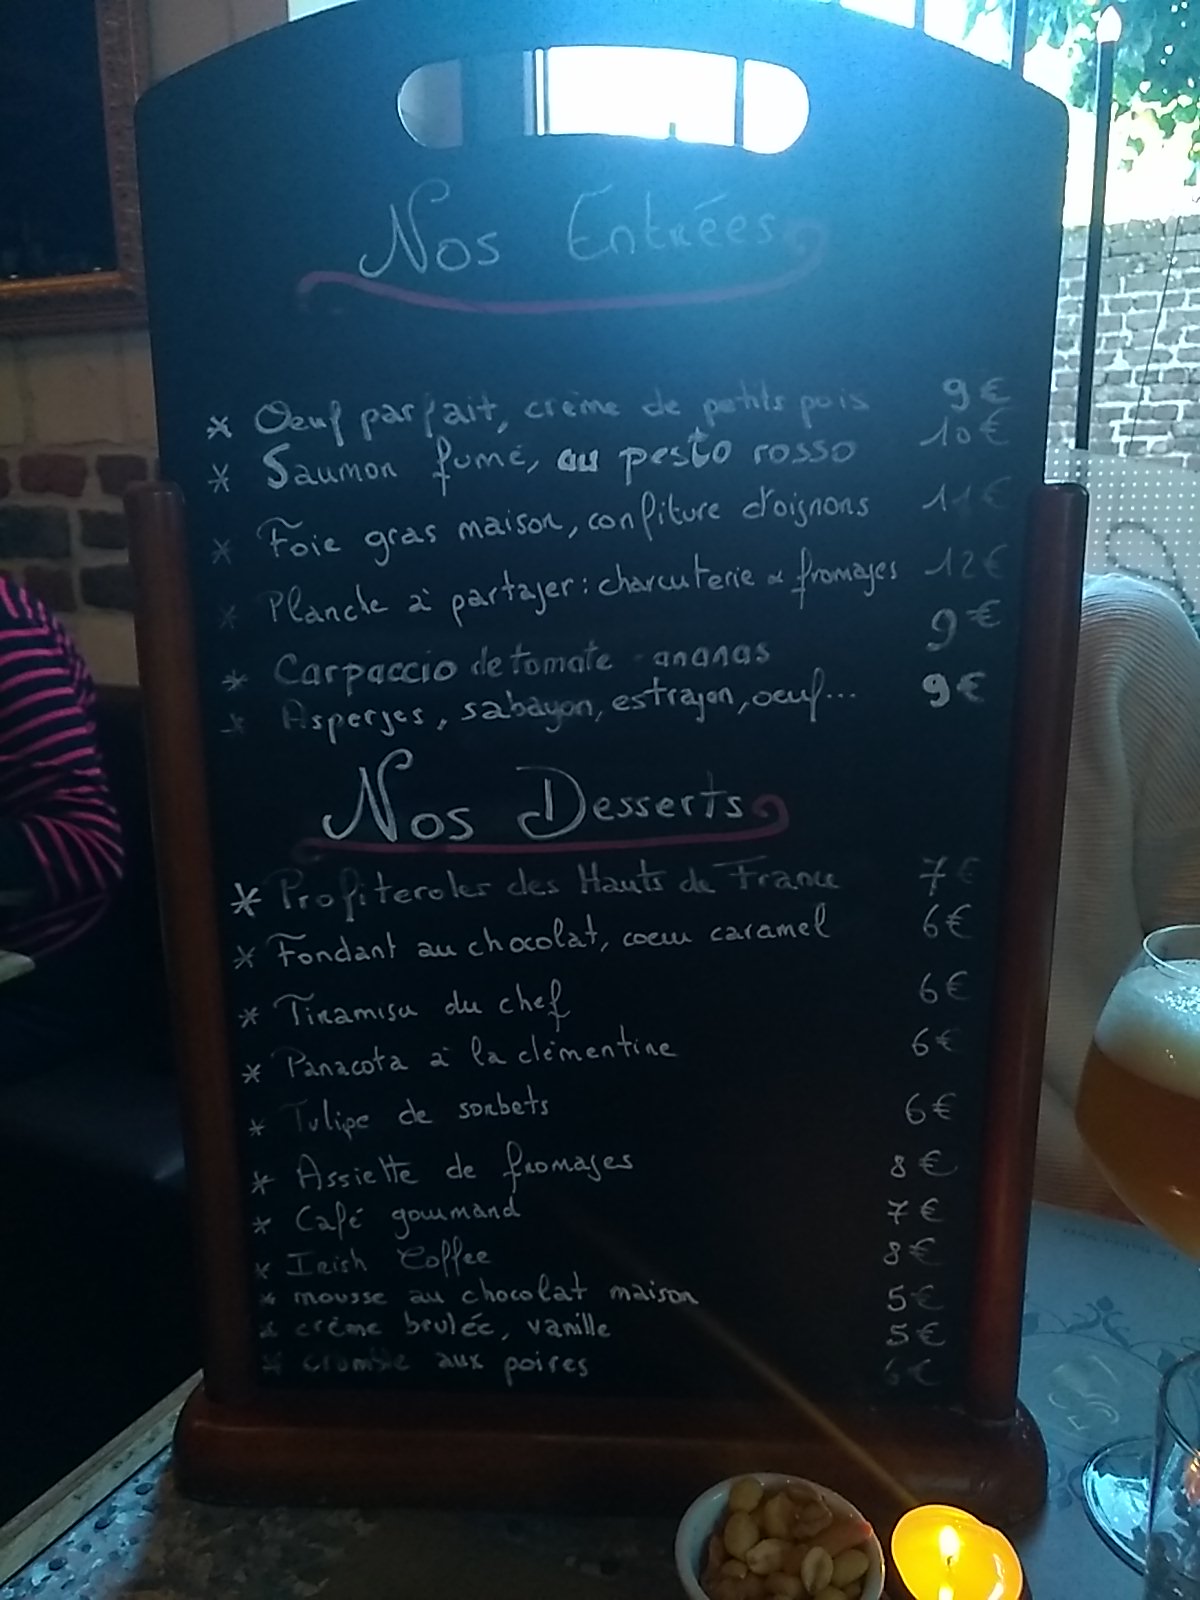 Nos Entrées
* Oeuf parfait, crème de petits pois 9€
* Saumon fumé, au pesto rosso 10€
* Foie gras maison, confiture d'oignons 11€
* Planche à partager : charcuterie & fromages 12€
* Carpaccio de tomate - ananas 9€
* Asperges, sabayon, estragon, oeuf... 9€
Nos Desserts
* Profiteroles des Hauts de France 7€
* Fondant au chocolat, coeur caramel 6€
* Tiramisu du chef 6€
* Panacota à la clémentine 6€
* Tulipe de sorbets 6€
* Assiette de fromages 8€
* Café gourmand 7€
* Irish Coffee 8€
* mousse au chocolat maison 5€
* crème brulée, vanille 5€
* crumble aux poires 6€